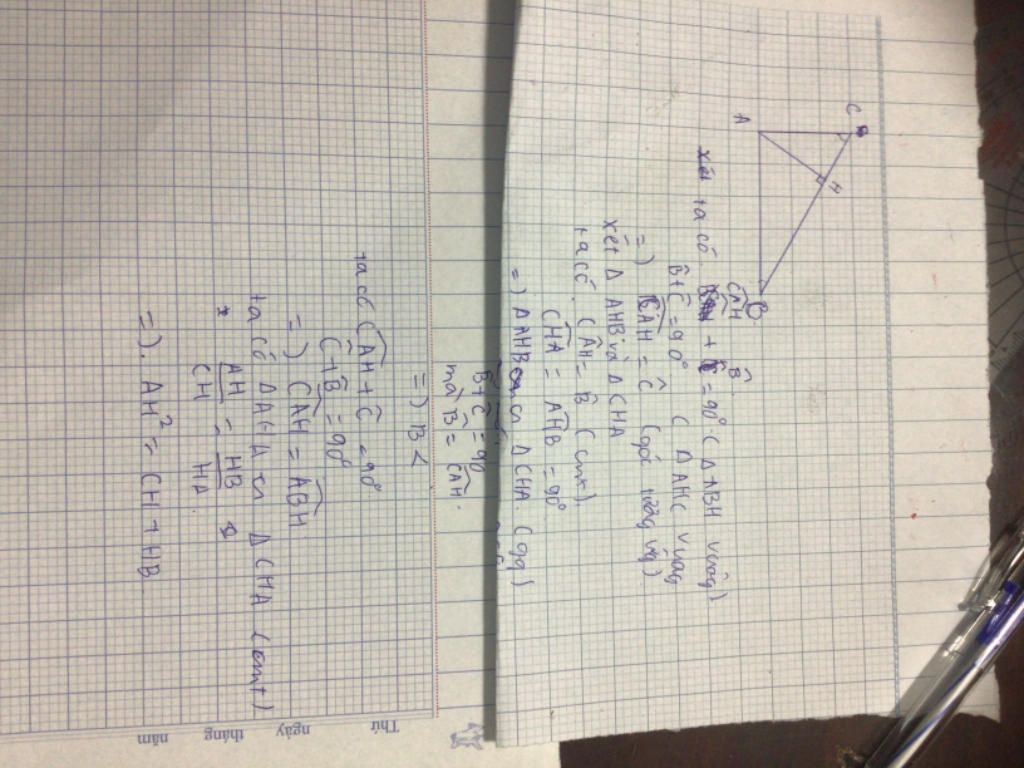 C
A
H
B
xét ta có CAH + B = 90° (ΔABH vuông)
B̂+Ĉ=90° (ΔAHC vuông
=) CAH = Ĉ (góc tương ứng)
xét Δ AHB và Δ CHA
ta có. CAH = B̂ (cmt)
CHA = AHB = 90°
=) Δ AHB ~ Δ CHA. (gg)
B̂+Ĉ=90
mà B̂ = CAH.
=) B <
ta có CAH + Ĉ = 90°
Ĉ+B̂ = 90°
=) CAH = ABH
ta có Δ AHA ~ Δ CHA (cmt)
AH = HB
CH HA
=). AH² = CH + HB
Thứ ngày tháng năm